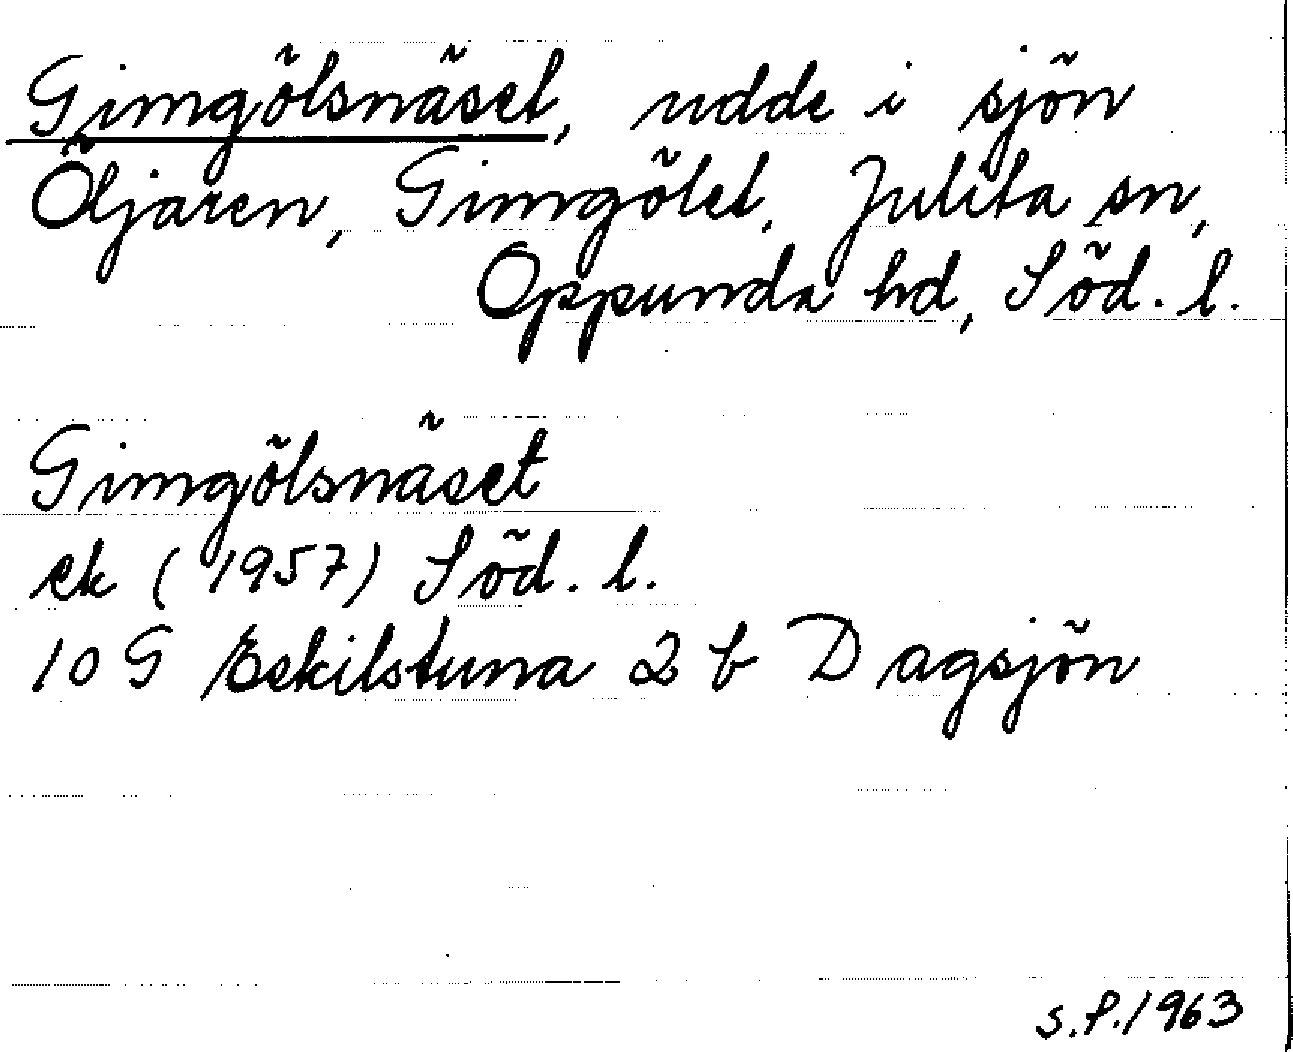 Gimgölsnäset, udde i sjön
Öljaren, Gimgölet, Julita sn,
Oppunda hd, Söd. l.
Gimgölsnäset
ek (1957) Söd. l.
10 G Eskilstuna 2 b Dagsjön
S.P. 1963